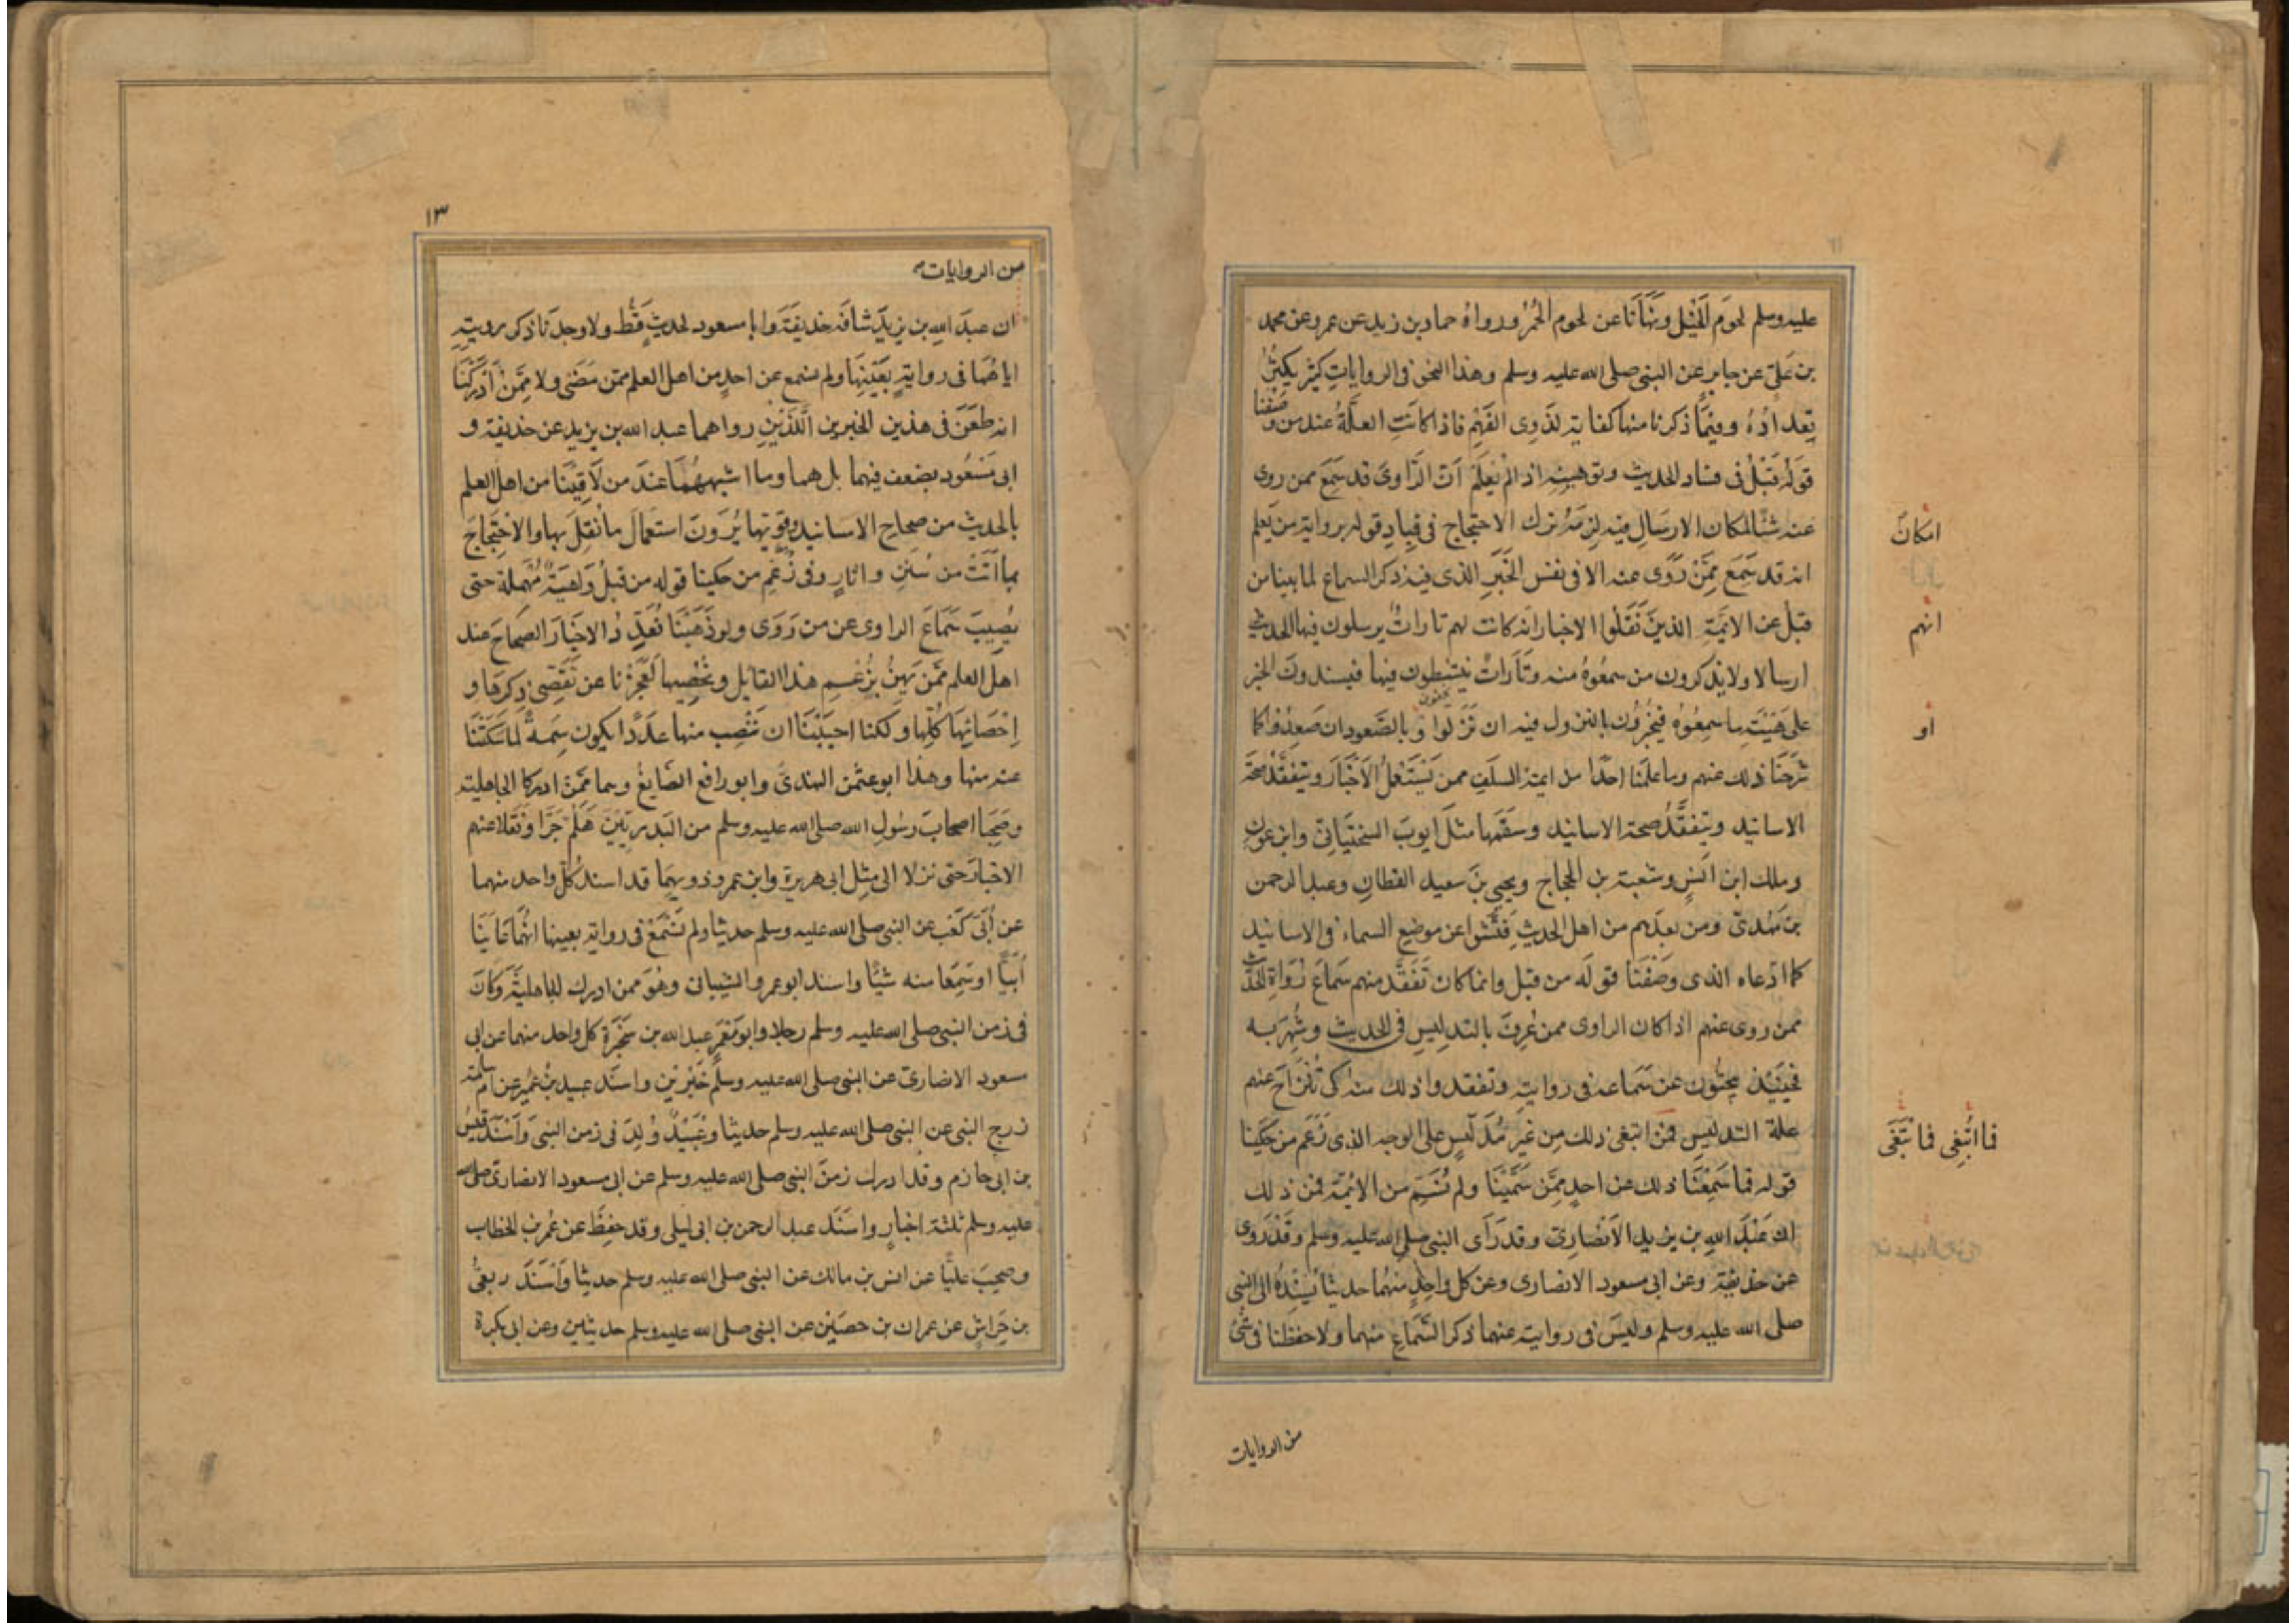 عليه وسلم لحوم الخيل ونهانا عن لحوم الحُمُر ورواه حماد بن زيد عن عمرو عن محمد
بن عَلي عن جابر عن النبي صلى الله عليه وسلم وهذا النحو في الروايات كثير يكثرُ
تِعدادُهُ وفيما ذكرنا منها كفاية لذوي الفَهْمِ فاذا كانَتِ العلّةُ عند من وَصَفْنا
قولَه قَبْلُ في فساد الحديث وتوهينه اذا لم يُعلَم انّ الرّاوىَ قد سَمِعَ ممن روى
عنه شيئًا لمكان الارسال فيه لزِمَهُ ترك الاحتجاج في قيادِ قوله برواية من يَعلم
انه قد سَمِعَ مِمَّنْ رَوَى عنه الا في نفس الخَبَرِ الذي فيه ذكر السماع لما بينا من
قبلُ عن الائمّة الذينَ نَقَلُوا الاخبار انه كانت لهم تاراتٌ يرسلون فيها الحديث
ارسالا ولا يذكرون من سمعُوهُ منه وتَارَاتٌ ينشطون فيها فيسندونَ الخبر
على هَيْئَتِ ما سمِعُوه فيخبرُون بالنزول فيه ان نَزَلوا وبالصَّعود ان صَعِدُوا كما
شرَحْنَا ذلك عنهم وما علمنا احدًا من ايمة السلف ممن يَسْتَعْمِلُ الاَخْبَارَ ويتفقَّدُ صحة
الاسانيد ويتفقَّدُ صحة الاسانيد وسَقَمها مثلَ ايوبَ السختِيَانِيّ وابن عون
وملك ابن انَسٍ وشعبة بن الحجاج ويحيى بنَ سعيد القطانِ وعبد الرحمن
بن مَهْدىّ ومن بعدَهم من اهل الحديثِ فَتَّشوا عن موضِعِ السماء في الاسانيد
كما ادعاه الذى وَصَفْنَا قولَه من قبل وانما كان تَفَقُّد منهم سَمَاعَ رُواةِ الحديث
ممن روى عنهم اذا كان الراوى ممن عُرِفَ بالتدليسِ في الحديث وشُهِرَ به
فحينَئِذٍ يبحثُون عن سَمَاعه في روايتِه وتفقدوا ذلك منه كى تَنْزاحَ عنهم
علة التدليسِ فمن ابتغى ذلك من غير مُدَلِّسٍ على الوجه الذى زَعَم من حكينا
قوله فما سَمِعْنَا ذلك عن احدٍ مِمَّن سَمَّيْنَا ولم نُسَمِّ من الائمة فمن ذلك
انّ عَبْدَ اللهِ بن يزيد الاَنْصَارىّ وقد رَأى النبي صلى الله عليه وسلم وقَدْ رَوى
عن حذيفة وعن ابى مسعود الانصارى وعن كل واحِدٍ منهُما حديثا يُسْنِدُهُ الى النبي
صلى الله عليه وسلم وليسَ في روايته عنهما ذكر السَّمَاعِ منهما ولا حفظنا في شئ
من الروايات
امكان
انهم
او
فما ابتُغِى فما ابتَغَى
١٣
من الروايات
ان عبدَ اللهِ بن يزيدَ شافَه حذيفَةَ وابا مسعود لحديثٍ قَطُّ ولا وجدنا ذكر رويته
اياهُما في روايةٍ بعَيْنِهَا ولم نسمع عن احدٍ من اهل العلم ممن مَضَى ولا مِمَّنْ اَدرَكْنَا
انه طعَنَ في هذين الخبرين الَّلذَيْنِ رواهما عبد الله بن يزيد عن حذيفة و
ابى مَسْعُود بضعف فيهما بل هما وما اشبههُمَا عندَ من لاَقَيْنَا من اهل العلم
بالحديث من صحاح الاسانيد وقويّها يُرَوْنَ استعمالَ ما نُقِلَ بها والاحتِجَاجَ
بما اَتَتْ من سُنَنٍ واثارٍ وفى زُعْمِ من حكينا قوله من قبلُ وَاهيَةٌ مُهمَلة حتى
يُصيبَ سَمَاعَ الراوى عن من رَوَى ولو ذَهَبْنَا نُعَدِّدُ الاخبارَ الصحاحَ عند
اهل العلم مّمَن يَهِنُ بزُعْمِ هذا القايل ونُحْصِيها لَعَجَزْنا عن تَقَصِّى ذِكرهَا و
اِحْصَائِهَا كُلِّها ولكنا احبَبْنَا ان نَنْصِبَ منها عَدَدًا يكون سِمَةً لما سَكَتْنَا
عنه منها وهذا ابو عثمٰن النهدىّ وابو رافع الصّايغُ وهما مّمَن ادركا الجاهلية
وصَحِبَا اصحابَ رسُولِ الله صلى الله عليه وسلم من البَدريّينَ هَلُمّ جَرّا ونَقَلا عنهم
الاخبارَ حتى نزلا الى مِثل ابى هريرة وابن عمر وذويهِمَا قد اسند كُلّ واحد منهما
عن اُبَىّ كَعْب عن النبي صلى الله عليه وسلم حديثا ولم نَسْمَعْ في رواية بعينها انهُما عَايَنَا
اُبَيًّا او سَمِعَا منه شيْئًا واسند ابو عمرو الشيبانى وهُوَ ممن ادرك الجاهليةَ وكَانَ
في زمن النبي صلى الله عليه وسلم رجلا وابو مَعْمَرٍ عبد الله بن سَخْبَرَة كل واحد منهما عن ابى
مسعود الانصارىّ عن النبي صلى الله عليه وسلم خَبَرَين واسنَد عبيد بنُ عُمير عن ام سلمة
زوج النبي عن النبي صلى الله عليه وسلم حديثا وعُبَيْدٌ وُلِدَ في زمن النبي وَاَسْنَدَ قَيْسُ
بن ابى حازم وقد ادرك زمَنَ النبي صلى الله عليه وسلم عن ابى مسعود الانصارىّ صلى الله
عليه وسلم ثلثة اخبارٍ واسْنَدَ عبد الرحمن بن ابى ليلى وقد حفِظَ عن عُمر بن الخطاب
وصحِبَ عليًّا عن انس بن مالك عن النبي صلى الله عليه وسلم حديثا وَاَسْنَدَ ربعىُّ
بن حِرَاشٍ عن عمران بن حصَين عن النبي صلى الله عليه وسلم حديثين وعن ابى بكرة